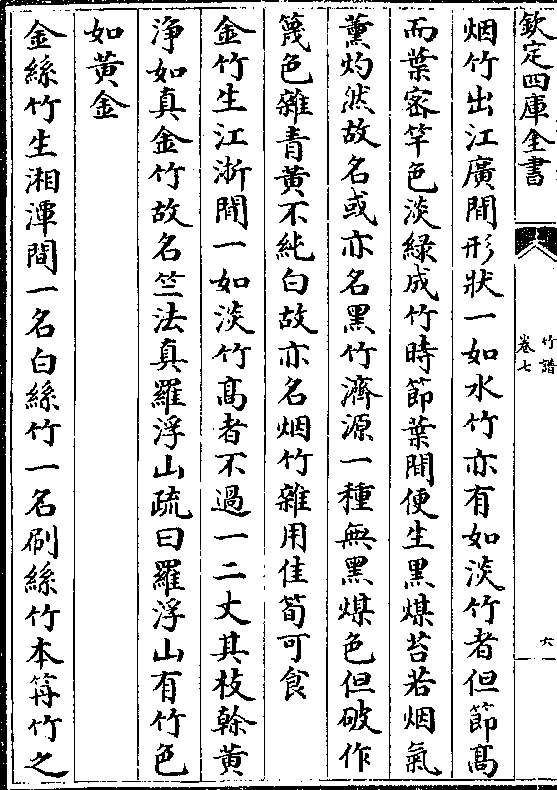 欽定四庫全書
竹譜
卷七
六
烟竹出江廣間形狀一如水竹亦有如淡竹者但節髙
而葉宻竿色淡緑成竹時節葉間便生黒煤苔若烟氣
薫灼然故名或亦名黒竹濟源一種無黒煤色但破作
篾色雜青黄不純白故亦名烟竹雜用佳筍可食
金竹生江浙間一如淡竹髙者不過一二丈其枝榦黄
浄如真金竹故名竺法真羅浮山疏曰羅浮山有竹色
如黄金
金絲竹生湘潭間一名白絲竹一名刷絲竹本苐竹之